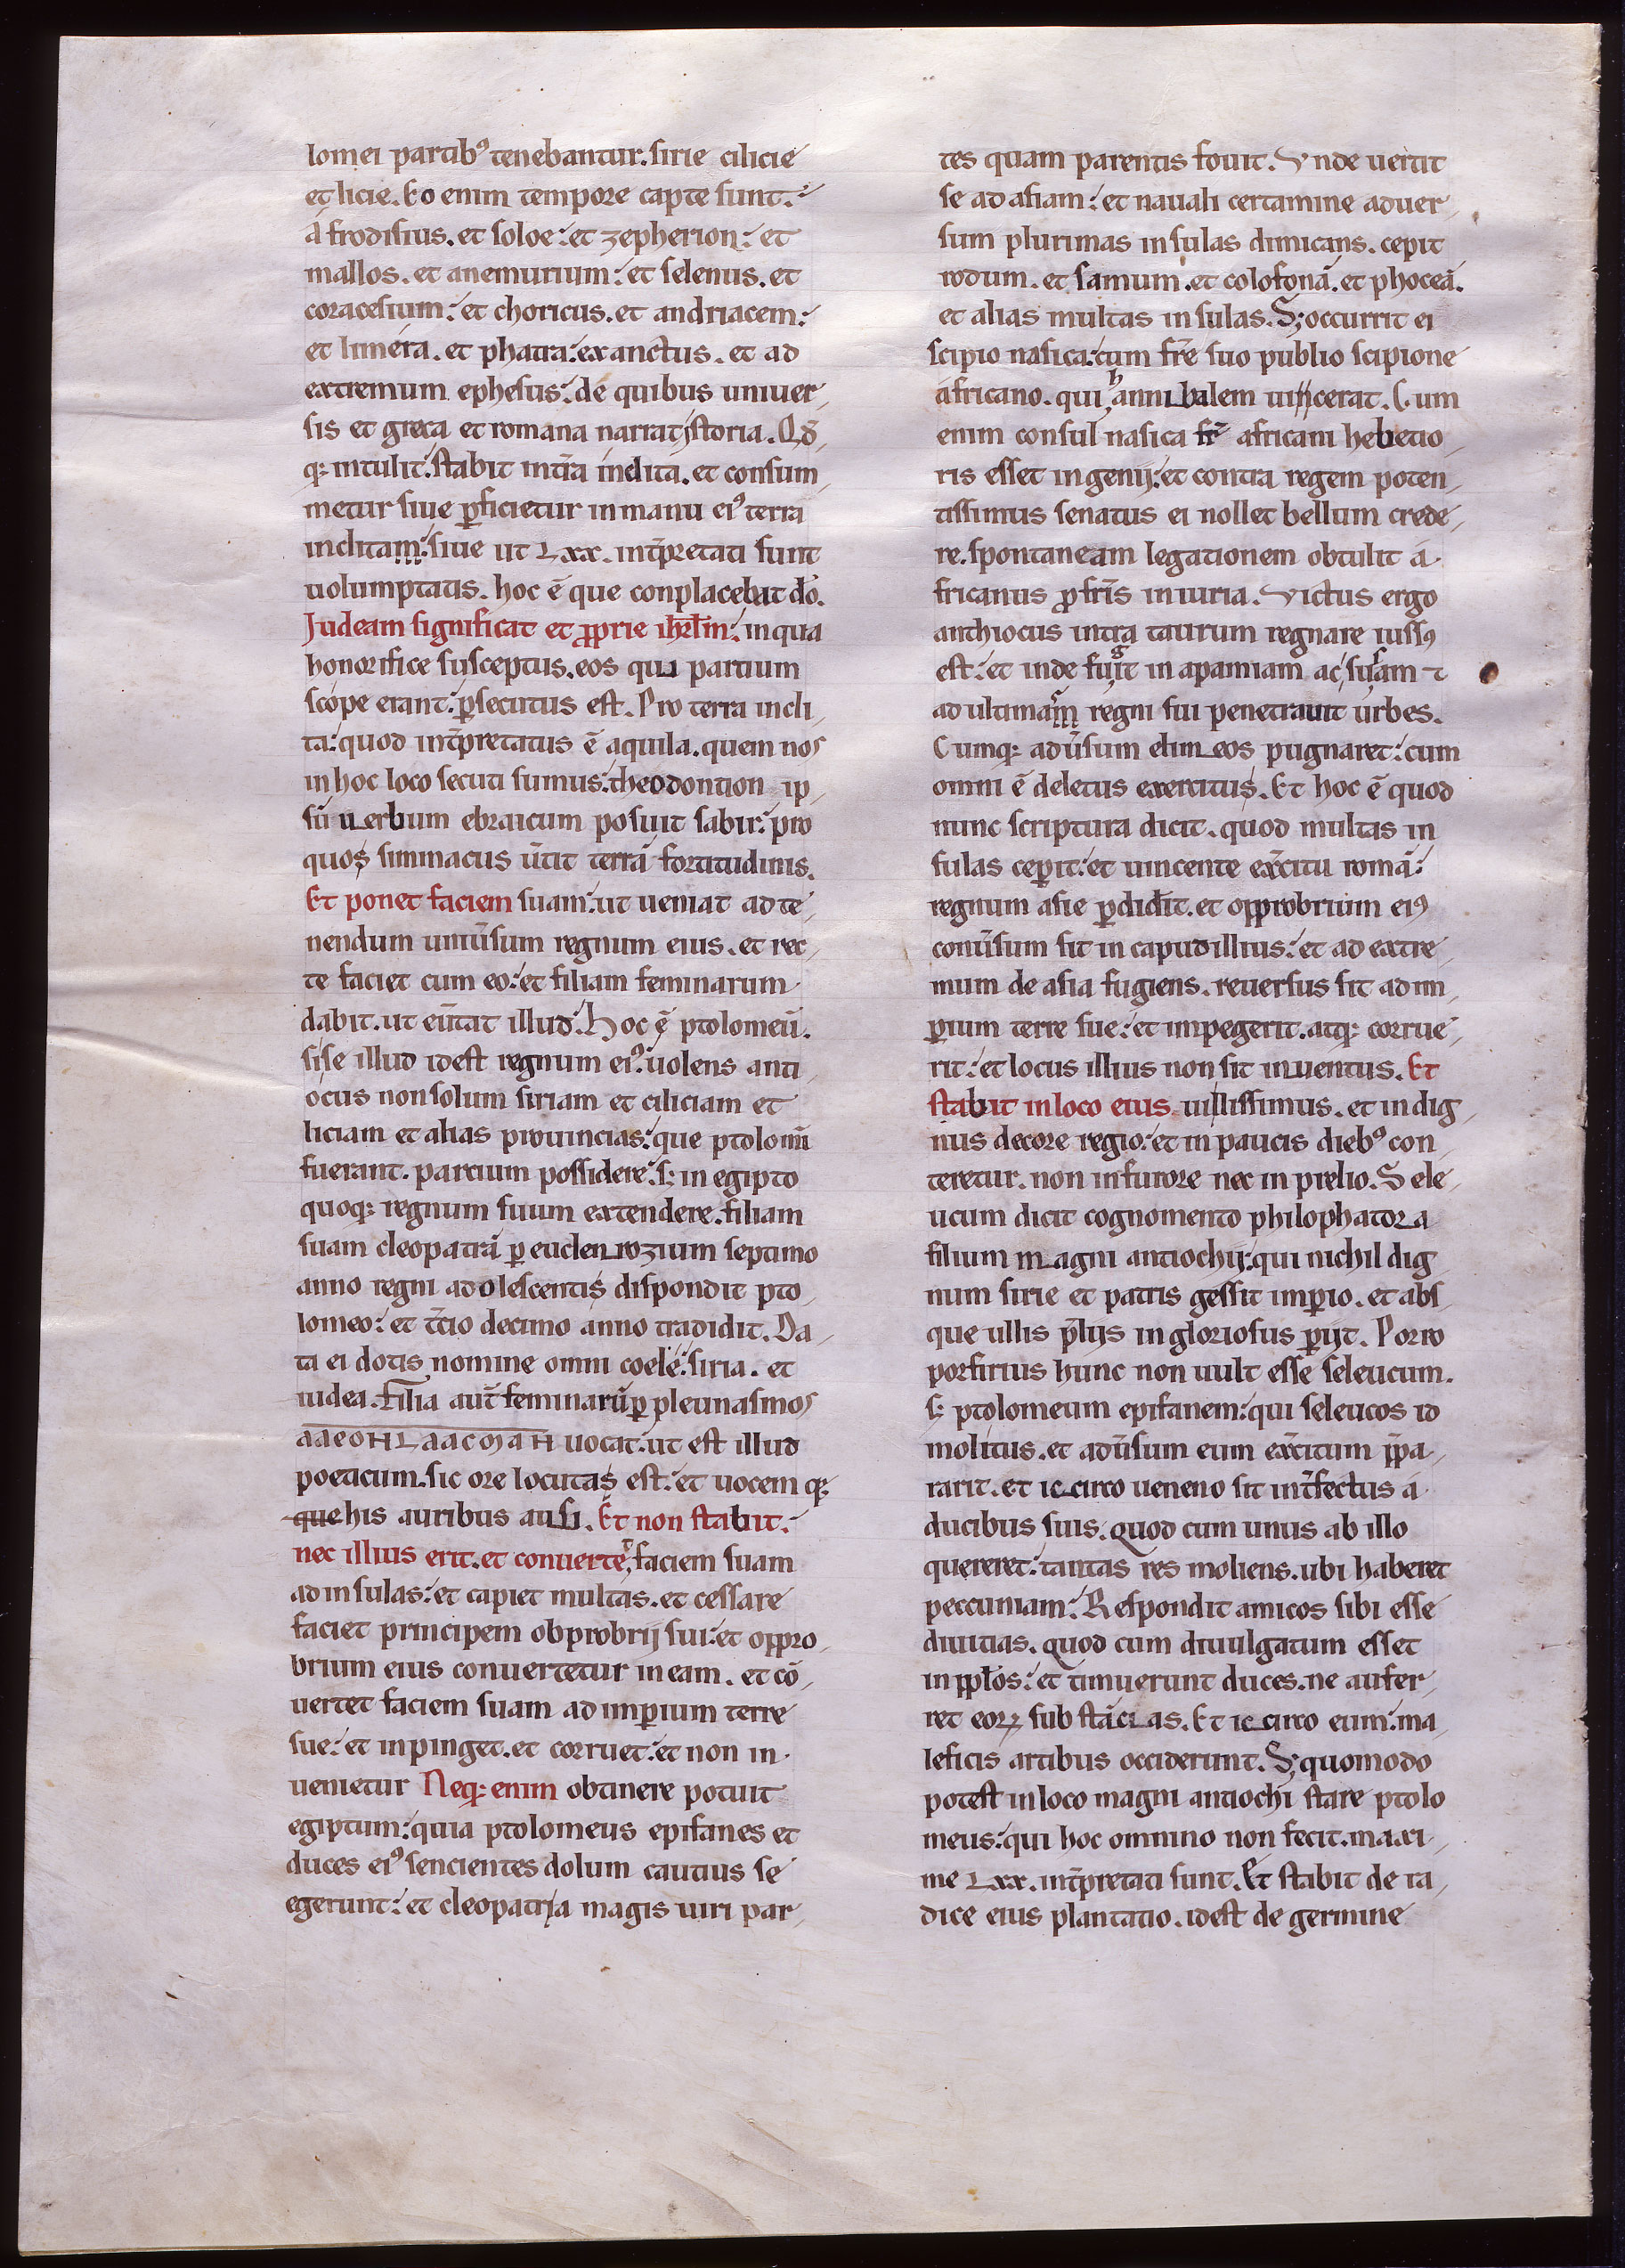 lomei partib⁹ tenebantur. sirie cilicie
et licie. Eo enim tempore capte sunt.
a frodisius. et soloe: et zepherion: et
mallos. et anemurium: et selenus. et
coracesium: et choricus. et andriacem:
et limera. et phatra: exanctus. et ad
extremum ephesus: de quibus univer
sis et greca et romana narrat ystoria. Qd̄
q; intulit. stabit int̄ra indita. et consum
metur siue ꝑficietur in manu ei⁹ terra
inclitam: siue ut Lxx. int̄pretati sunt
uolumptatis. hoc ē que conplacebat dō.
Judeam significat et ꝓprie ihrl̄m: in qua
honorifice susceptus. eos qui partium
scope erant: ꝑsecutus est. Pro terra incli
ta: quod int̄pretatus ē aquila. quem nos
in hoc loco secuti sumus: theodontion ip
sū uerbum ebraicum posuit sabir: pro
quos simmacus ūtit terrā fortitudinis.
Et ponet faciem suam: ut ueniat ad te
nendum uniūsum regnum eius. et rec
te faciet cum eo: et filiam feminarum
dabit. ut eūtat illud. Hoc ē ptolomeū.
si se illud idest regnum ei⁹. uolens anti
ocus non solum siriam et ciliciam et
liciam et alias prouincias: que ptolom̄i
fuerant. partium possidere: s; in egipto
quoq; regnum suum extendere. filiam
suam cleopatrā ꝑ euclen rozium septimo
anno regni adolescentis dispondit pto
lomeo: et t̄cio decimo anno tradidit. Da
ta ei dotis nomine omni coele: siria. et
iudea. filia aut̄ feminarū ꝑ pleunasmos
uocat. ut est illud
poeticum. sic ore locutas est: et uocem q;
que his auribus ausi. Et non stabit.
nec illius erit. et converte͛ faciem suam
ad insulas: et capiet multas. et cessare
faciet principem obprobrij sui: et oppro
brium eius conuertetur in eam. et cō
uertet faciem suam ad imꝑium terre
sue: et inpinget. et corruet: et non in
uenietur Neq; enim obtinere potuit
egiptum: quia ptolomeus epifanes et
duces ei⁹ sencientes dolum cautius se
egerunt: et cleopatria magis uiri par
tes quam parentis fouit. Vnde uertit
se ad asiam: et navali certamine aduer
sum plurimas insulas dimicans. cepit
rodum. et samum. et colofonā. et phoceā.
et alias multas insulas. S; occurrit ei
scipio nasica: cum fr̄e suo publio scipione
africano. qui hannibalem uincerat. Cum
enim consul nasica fr̄ africani hebetio
ris esset ingenij: et contra regem poten
tissimus senatus ei nollet bellum crede
re. spontaneam legationem obtulit a
fricanus ꝓ fr̄is iniuria. Victus ergo
anthiocus intra taurum regnare iuss⁹
est: et inde fugit in apamiam ac susam ⁊
ad ultimam regni sui penetrauit urbes.
Cumq; adūsum elimeos pugnaret: cum
omni ē deletus exercitus. Et hoc ē quod
nunc scriptura dicit. quod multas in
sulas ceꝑit: et uincente ex̄citu romā:
regnum asie ꝑdidit. et opprobrium ei⁹
conūsum sit in capud illius: et ad extre
mum de asia fugiens. reuersus sit ad im
ꝑium terre sue: et impegerit. atq; corrue
rit: et locus illius non sit inuentus. Et
stabit in loco eius uillissimus. et indig
nus decore regio: et in paucis dieb⁹ con
teretur. non in furore nec in prelio. Sele
ucum dicit cognomento philophatora
filium magni antiochij: qui nichil dig
num sirie et patris gessit imꝑio. et abs
que ullis p̄lijs ingloriosus ꝑijt. Porro
porfirius hunc non uult esse seleucum.
s; ptolomeum epifanem: qui seleucos id
molitus. et adūsum eum ex̄citum p̄pa
rarit. et iccirco ueneno sit int̄fectus a
ducibus suis. Quod cum unus ab illo
quereret: tantas res moliens. ubi haberet
peccuniam: Respondit amicos sibi esse
diuitias. quod cum diuulgatum esset
in ppl̄os: et timuerunt duces. ne aufer
ret eoꝝ substācias. Et iccirco eum: ma
leficis artibus occiderunt. S; quomodo
potest in loco magni antiochi stare ptolo
meus: qui hoc omnino non fecit. maxi
me Lxx. int̄pretati sunt. Et stabit de ra
dice eius plantatio. idest de germine